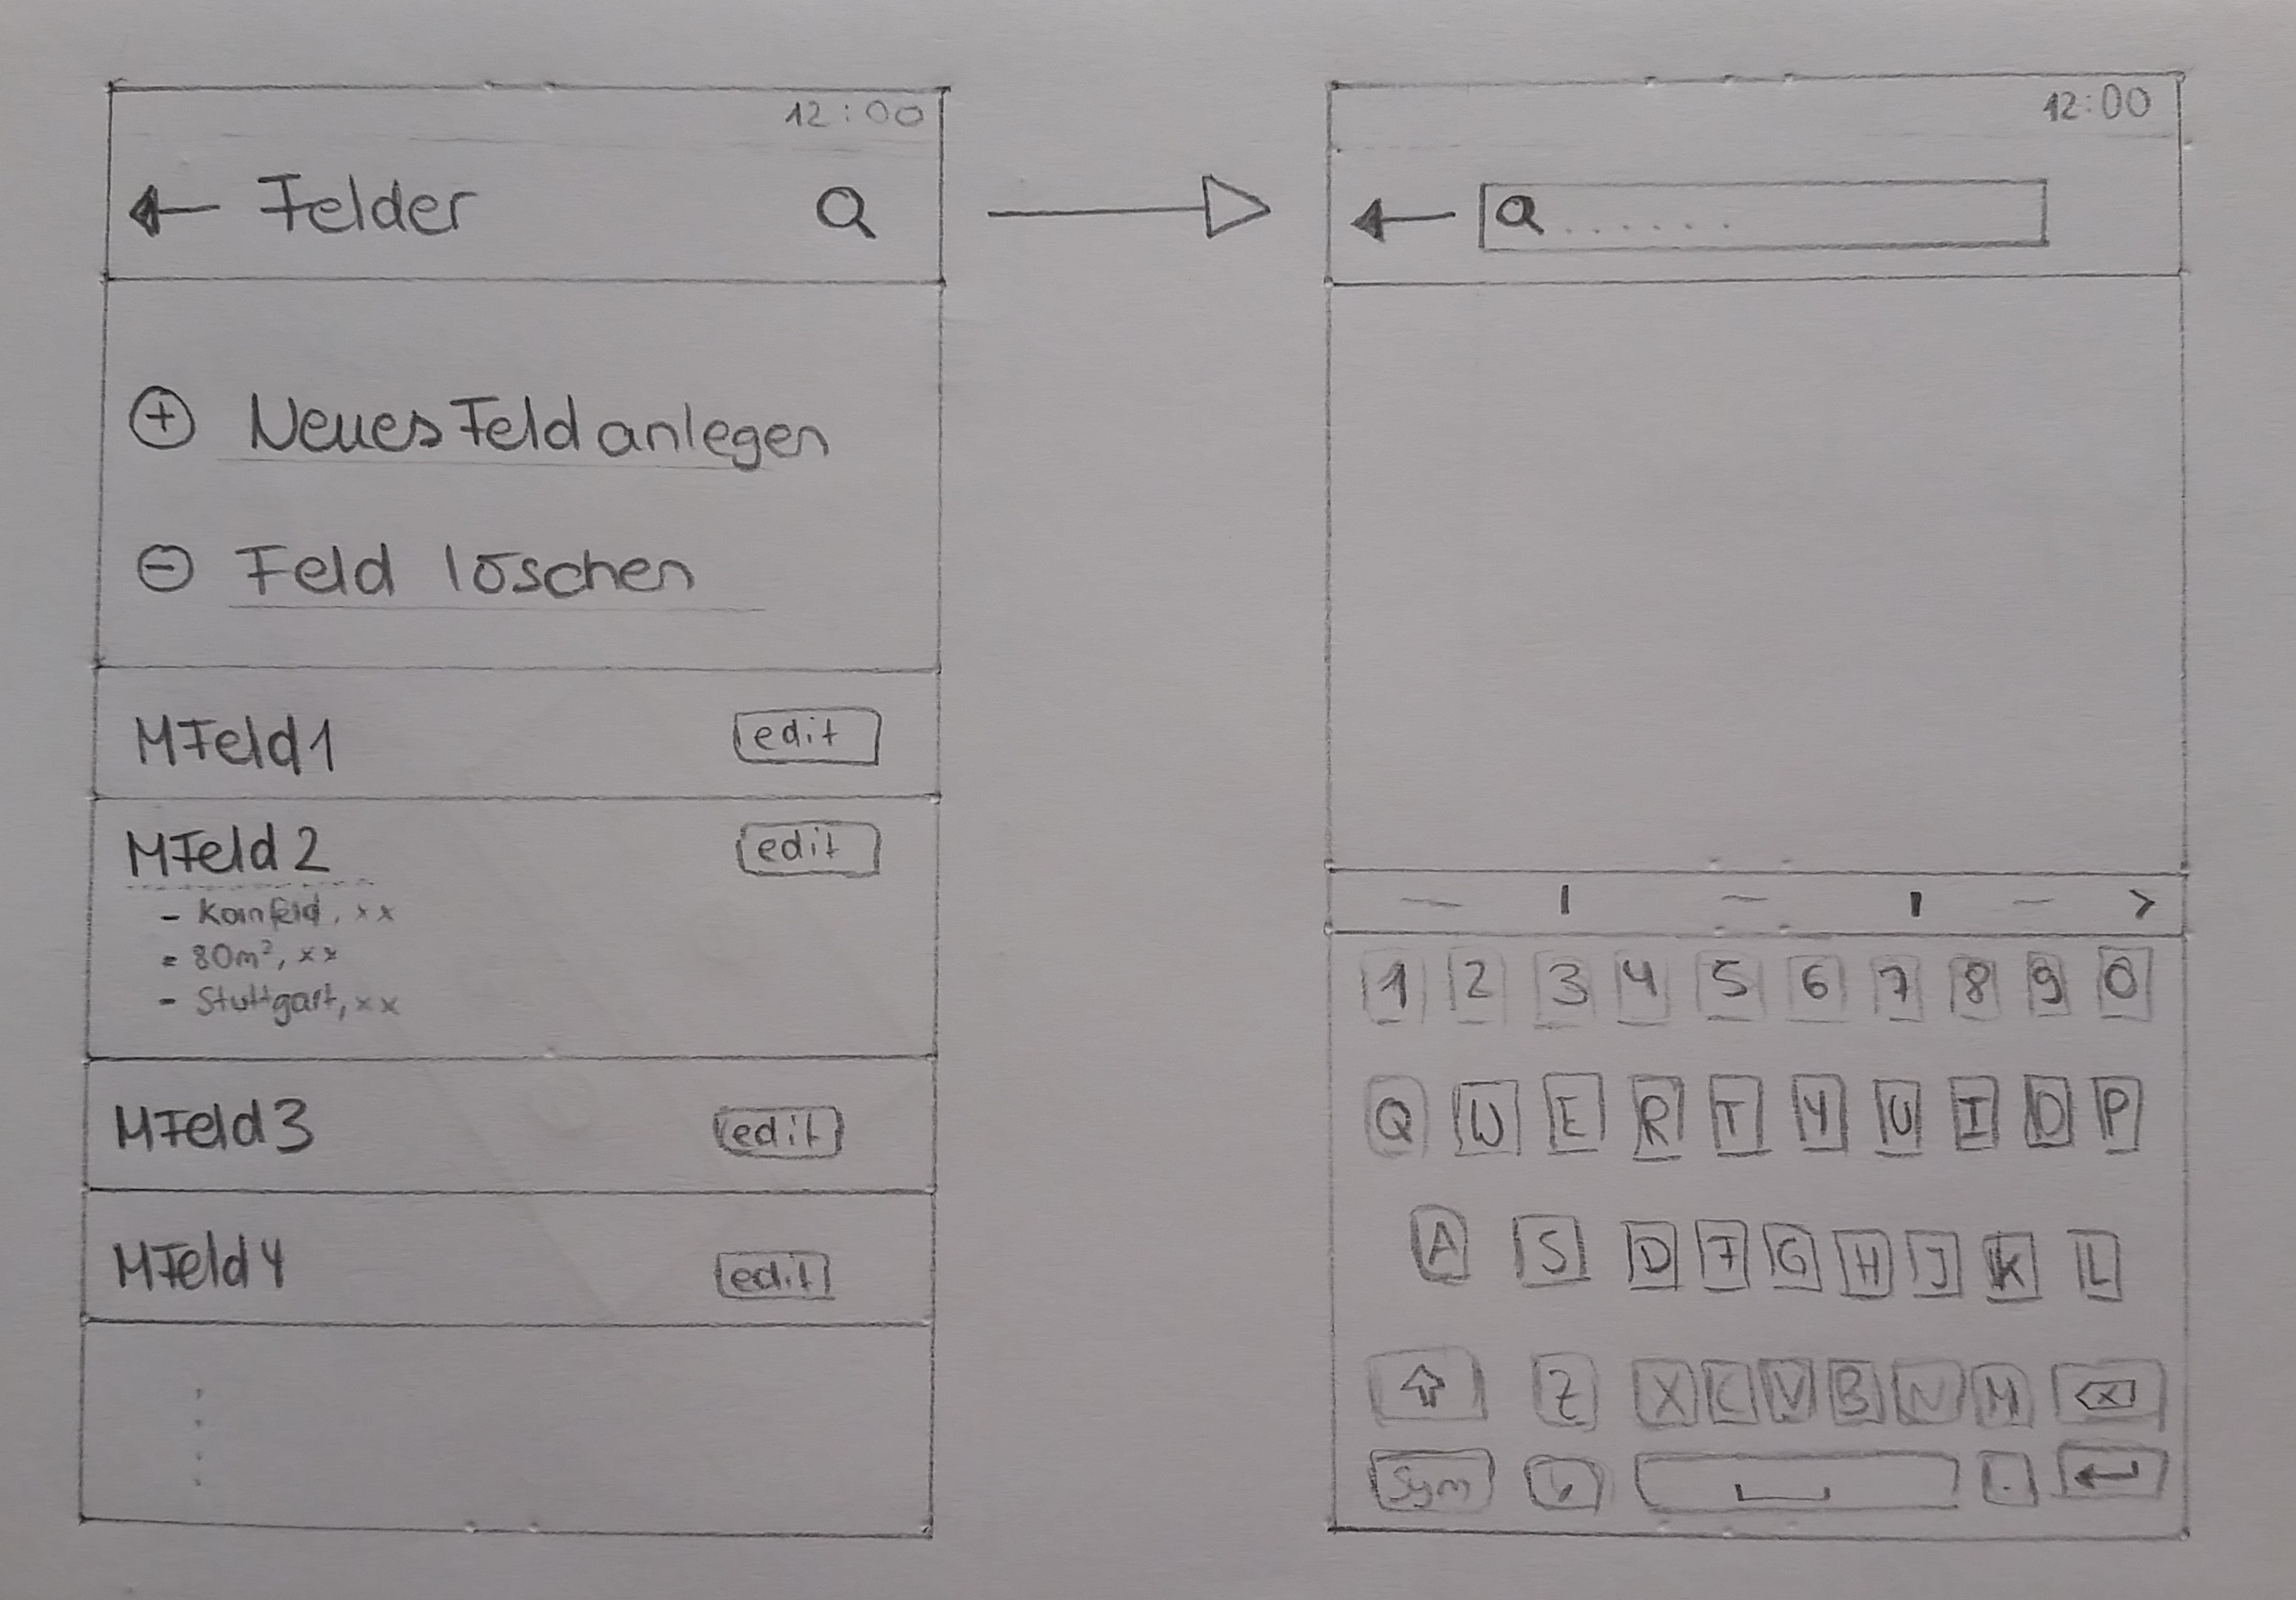 12:00
Felder
Neues Feld anlegen
Feld löschen
MFeld1
edit
MFeld2
edit
- Kornfeld, xx
- 80m², xx
- Stuttgart, xx
MFeld3
edit
MFeld4
edit
12:00
1 2 3 4 5 6 7 8 9 0
Q W E R T Y U I O P
A S D F G H J K L
Z X C V B N M
Sym , .